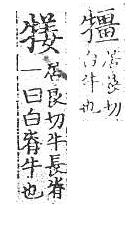 居良切
白牛也
居良切牛長脊
一曰白脊牛也